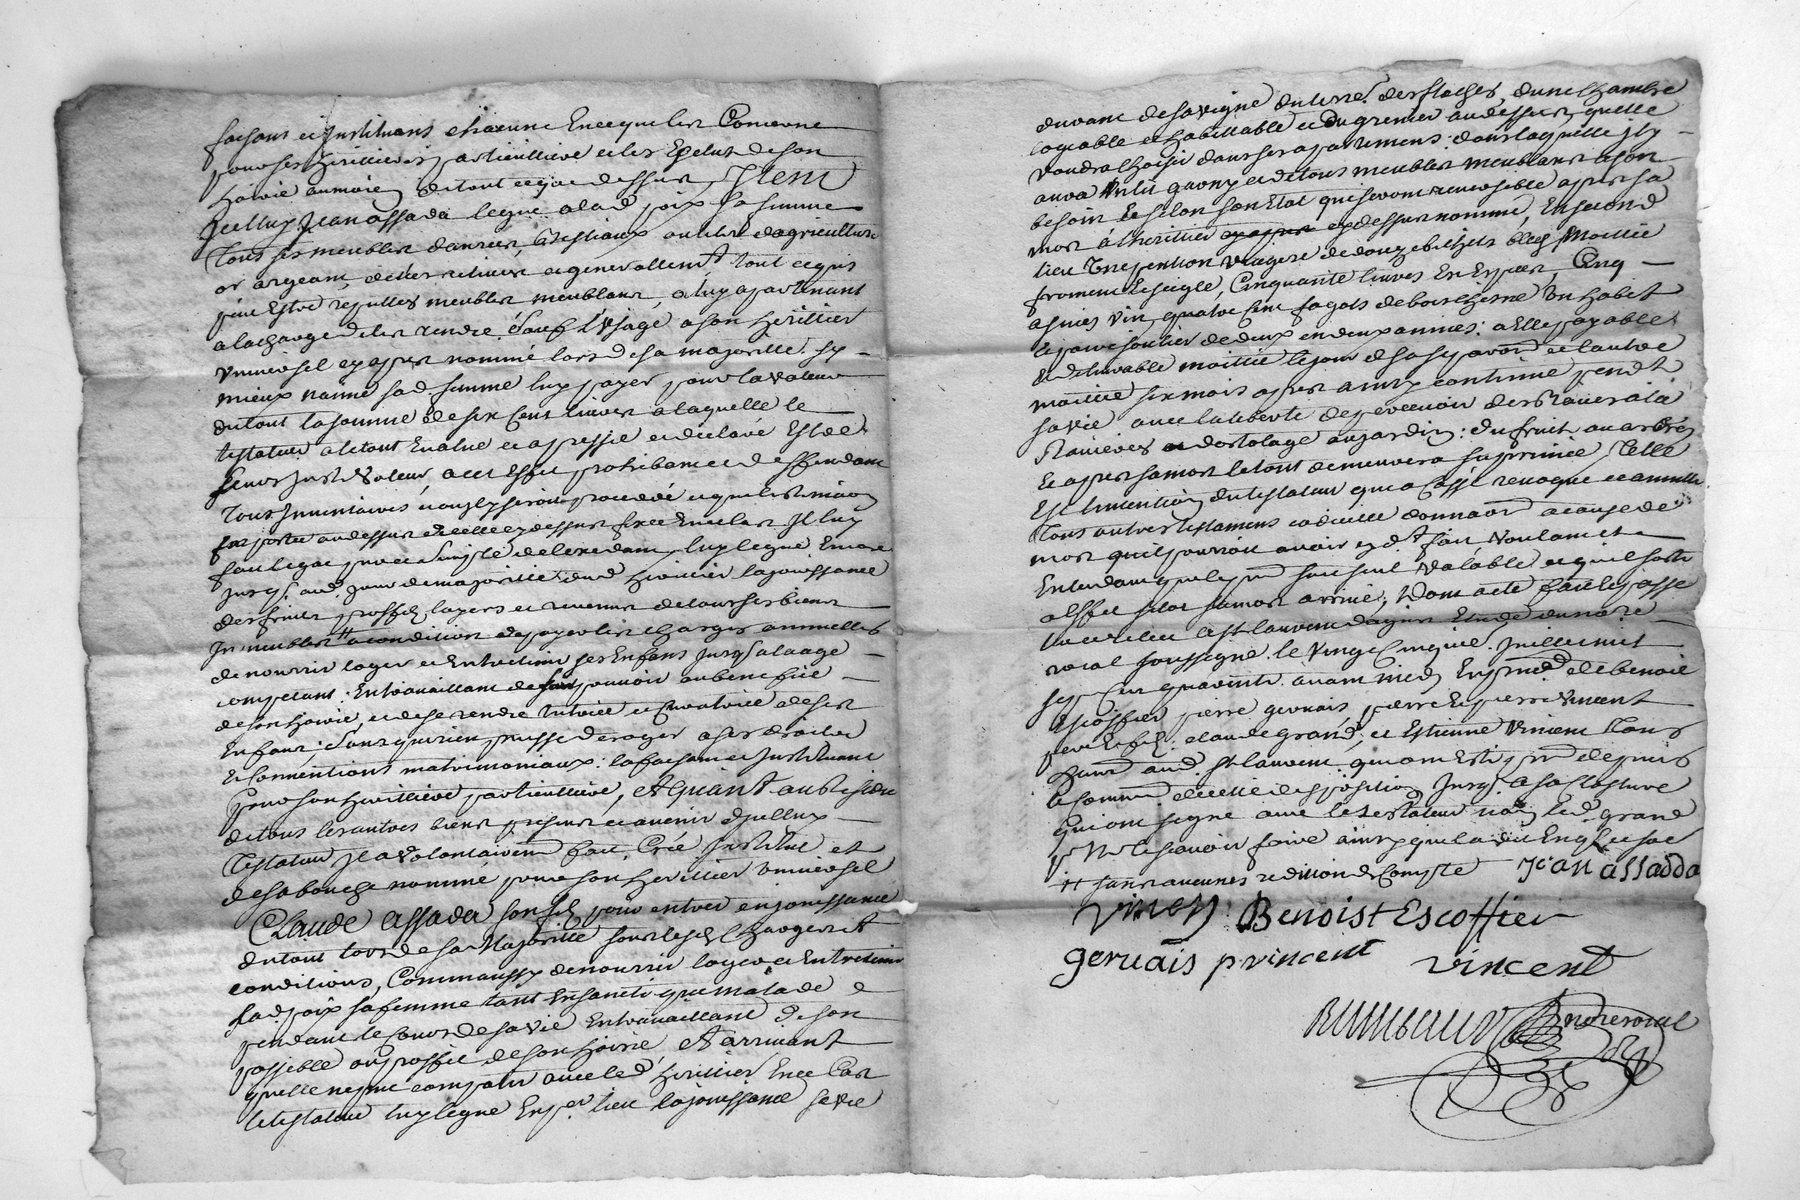 faisant et Instituant chacune Encequeles Concerne
pour ses heritieres particulliere et les Exclut de son
hoirie au moien de tout ce que dessus, Item
Icelluy Jean assada legue a lad. poix sa femme
Tous ses meubles danrées, bestiaux outils dagriculture
or argeant, dettes actives et generallemt. tout ce qui
peut Estre reputtes meubles meublans, a luy apartenant
a la charge de les rendre. sauf l'usage a son heritier
universel cy apres nommé lors de sa majorité. sy
mieux n'aime sad. femme luy payer pour la valeur
du tout la somme de six cent livres a laquelle le
testateur a le tout Evalué et apressie et declaré Estre
leur juste valeur, a cet Effet prohibant et deffendant
Tous Inventaires
fut portée au dessus de celle cy dessus fixée Il luy
fait legue de lexedant, luy legue Encore
jusqs. aud. jour de majorité dud. heritier la jouissance
des fruits proffits, loyers et revenus de tous ses biens
Immeubles ++ a condition de payer les charges annuelles
de nourrir loger et Entretenir ses Enfans jusqs. a laage
competant. En travaillant de leur pouvoir au benefice
de son hoirie, et de se rendre tutrice et curatrice de ses
Enfans; sans que rien puisse deroger a ses droits
et Conventions matrimoniaux: la faisant et Instituant
pour son heritiere particulliere, Et Quant au residu
de tous les autres biens presents et avenir djcelluy
Testateur Il a volontairemt. fait, Créé Institué et
de sa bouche nommé pour son heritier universel
Claude assada son fils pour entrer en jouissance
du tout lors de sa Majorité sous lesd. charges et
conditions, Comm'aussy de nourrir loger et Entretenir
lad. poix sa femme tant En santé que malade
pendant le cours de sa vie En travaillant de son
possible au proffit de son hoirie Et arrivant
quelle ne put compatir avec led. heritier En ce Cas
le testateur luy legue En per. lieu la jouissance sa vie
durant de sa vigne du terre. des flaches, d'une chambre
logeable et habitable et du grenier au dessus, quelle
voudra choisir dans ses apartemens: dans laquelle Il y
aura un lit garny et de tous meubles meublans a son
besoin et selon son Etat qui seront reversible apres sa
mort à l'heritier cy dessus nommé, En second
lieu une pention viagere de douze bichets bled moitié
froment et seigle, Cinquante livres En Especes, Cinq
asnées vin, quatre cent fagots de bois chesne Un habit
et paire soulier de deux en deux années: a Elle payable
et delivrable moitié le jour de sa separaon. et l'autre
moitié six mois apres ainsy continué pendt.
sa vie avec la liberté de percevoir des raves a la
raviéres et dortolage au jardin: du fruit au arbres
Et apres sa mort le tout demeurera suprimée, Telle
Est l'intention du testateur qui a cassé revoqué et annullé
Tous autres testamens codicille donnaon. a cause de
mort quil pourroit avoir cy dt. fait voulant et
Entendant que le pnt. soit seul valable et qu'il sorte
a Effet sitot sa mort arrivé, Dont acte fait et passé
au lieu de St laurens dagny Etude du nore.
roial soussigné. le vingt cinquie. Juillet mil
sept cent quarante. avant midy En pnce. de benoit
Escoffier pierre gervais pierre Et pierre vincent
pere et fils. claude grand, et Estienne Vinien tous
hants. aud. St laurent. qui ont Esté pnt. depuis
le commt. de cette disposition jusqs. a sa closture
qui ont signé avec le testateur non led. grand
pr. ne le scavoir faire ainsy que la dit Enquis
++ sans aucunes redition de compte Jean assada
Vinien Benoist Escoffier
gervais p vincent vincent
Rimbaud Nore roial